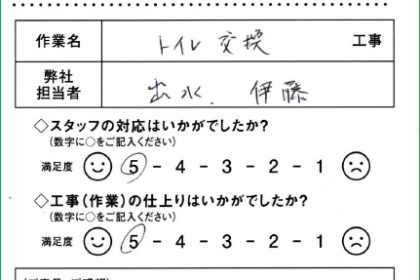 作業名 トイレ交換 工事
弊社
担当者 出水. 伊藤
◇スタッフの対応はいかがでしたか?
(数字に○をご記入ください)
満足度 5 - 4 - 3 - 2 - 1
◇工事(作業)の仕上りはいかがでしたか?
(数字に○をご記入ください)
満足度 5 - 4 - 3 - 2 - 1